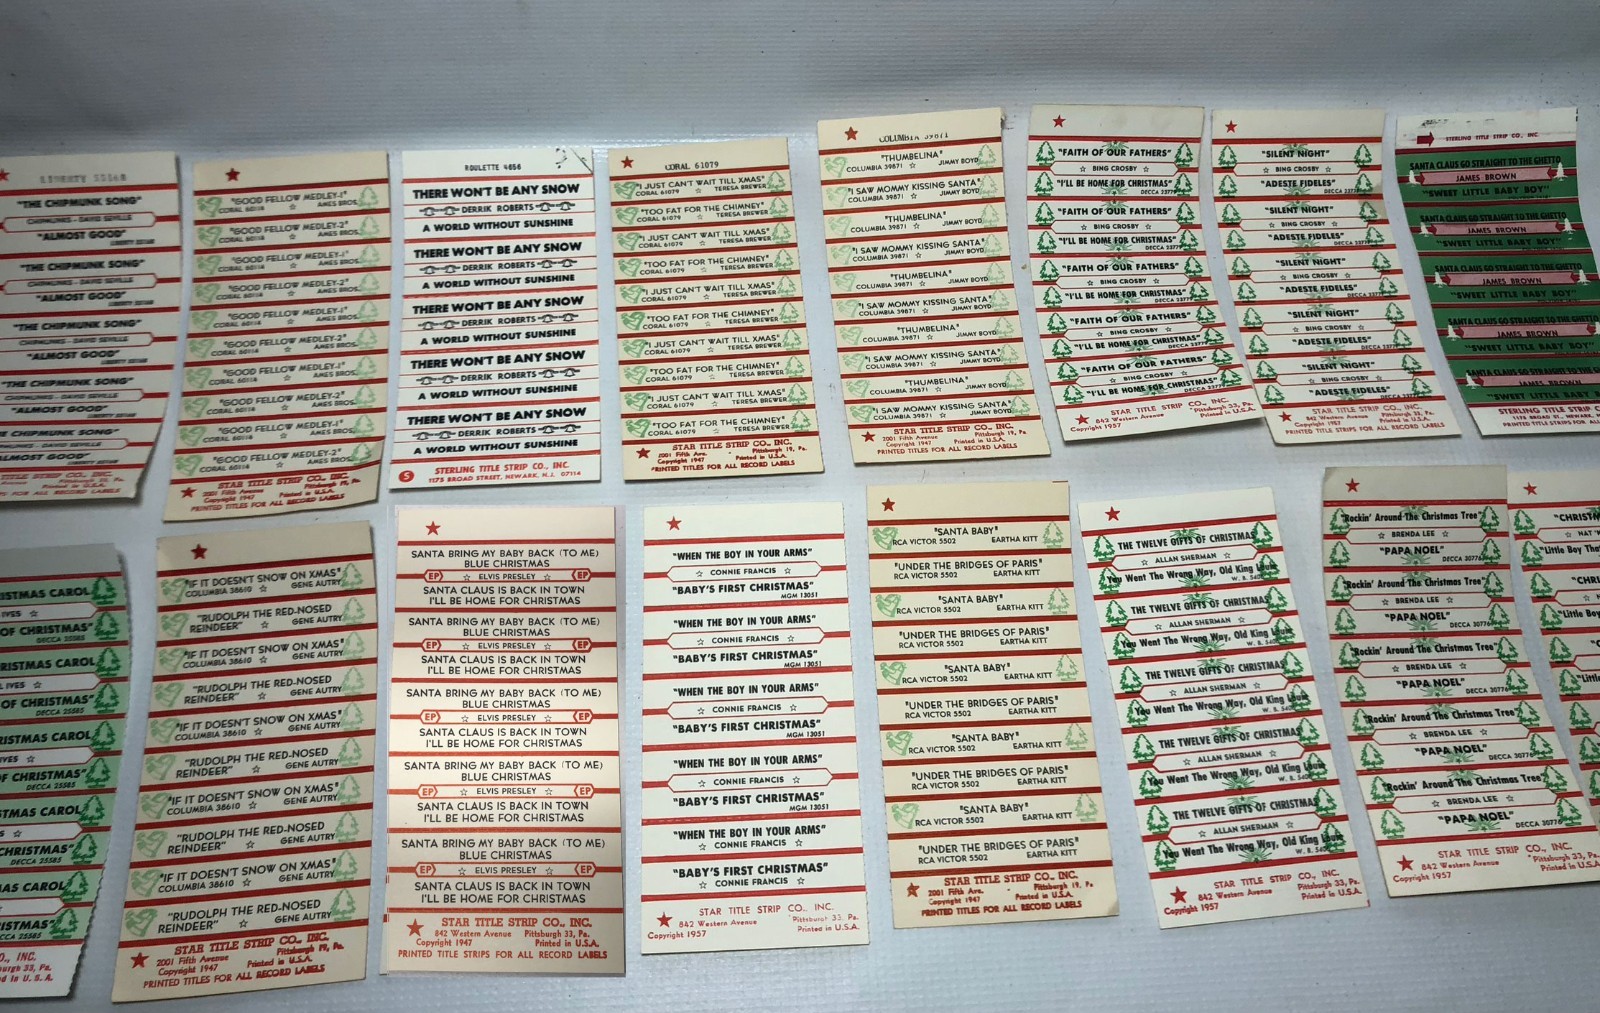 "THE CHIPMUNK SONG"
CHIPMUNKS - DAVID SEVILLE
"ALMOST GOOD"
"THE CHIPMUNK SONG"
CHIPMUNKS - DAVID SEVILLE
"ALMOST GOOD"
"THE CHIPMUNK SONG"
CHIPMUNKS - DAVID SEVILLE
"ALMOST GOOD"
"THE CHIPMUNK SONG"
CHIPMUNKS - DAVID SEVILLE
"ALMOST GOOD"
HE CHIPMUNK SONG"
CHIPMUNKS - DAVID SEVILLE
ALMOST GOOD"
"GOOD FELLOW MEDLEY-1"
CORAL 60114 ☆ AMES BROS.
"GOOD FELLOW MEDLEY-2"
CORAL 60114 ☆ AMES BROS.
"GOOD FELLOW MEDLEY-1"
CORAL 60114 ☆ AMES BROS.
"GOOD FELLOW MEDLEY-2"
CORAL 60114 ☆ AMES BROS.
"GOOD FELLOW MEDLEY-1"
CORAL 60114 ☆ AMES BROS.
"GOOD FELLOW MEDLEY-2"
CORAL 60114 ☆ AMES BROS.
"GOOD FELLOW MEDLEY-1"
CORAL 60114 ☆ AMES BROS.
"GOOD FELLOW MEDLEY-2"
CORAL 60114 ☆ AMES BROS.
"GOOD FELLOW MEDLEY-1"
CORAL 60114 ☆ AMES BROS.
"GOOD FELLOW MEDLEY-2"
CORAL 60114 ☆ AMES BROS.
STAR TITLE STRIP CO., INC.
2001 Fifth Avenue Pittsburgh 19, Pa.
Copyright 1947 Printed in U.S.A.
PRINTED TITLES FOR ALL RECORD LABELS
ROULETTE 4656
THERE WON'T BE ANY SNOW
DERRIK ROBERTS
A WORLD WITHOUT SUNSHINE
THERE WON'T BE ANY SNOW
DERRIK ROBERTS
A WORLD WITHOUT SUNSHINE
THERE WON'T BE ANY SNOW
DERRIK ROBERTS
A WORLD WITHOUT SUNSHINE
THERE WON'T BE ANY SNOW
DERRIK ROBERTS
A WORLD WITHOUT SUNSHINE
THERE WON'T BE ANY SNOW
DERRIK ROBERTS
A WORLD WITHOUT SUNSHINE
S STERLING TITLE STRIP CO., INC.
1175 BROAD STREET, NEWARK, N.J. 07114
CORAL 61079
"I JUST CAN'T WAIT TILL XMAS"
CORAL 61079 ☆ TERESA BREWER
"TOO FAT FOR THE CHIMNEY"
CORAL 61079 ☆ TERESA BREWER
"I JUST CAN'T WAIT TILL XMAS"
CORAL 61079 ☆ TERESA BREWER
"TOO FAT FOR THE CHIMNEY"
CORAL 61079 ☆ TERESA BREWER
"I JUST CAN'T WAIT TILL XMAS"
CORAL 61079 ☆ TERESA BREWER
"TOO FAT FOR THE CHIMNEY"
CORAL 61079 ☆ TERESA BREWER
"I JUST CAN'T WAIT TILL XMAS"
CORAL 61079 ☆ TERESA BREWER
"TOO FAT FOR THE CHIMNEY"
CORAL 61079 ☆ TERESA BREWER
"I JUST CAN'T WAIT TILL XMAS"
CORAL 61079 ☆ TERESA BREWER
"TOO FAT FOR THE CHIMNEY"
CORAL 61079 ☆ TERESA BREWER
STAR TITLE STRIP CO., INC.
2001 Fifth Ave. Pittsburgh 19, Pa.
Copyright 1947 Printed in U.S.A.
PRINTED TITLES FOR ALL RECORD LABELS
COLUMBIA 39871
"THUMBELINA"
COLUMBIA 39871 ☆ JIMMY BOYD
"I SAW MOMMY KISSING SANTA"
COLUMBIA 39871 ☆ JIMMY BOYD
"THUMBELINA"
COLUMBIA 39871 ☆ JIMMY BOYD
"I SAW MOMMY KISSING SANTA"
COLUMBIA 39871 ☆ JIMMY BOYD
"THUMBELINA"
COLUMBIA 39871 ☆ JIMMY BOYD
"I SAW MOMMY KISSING SANTA"
COLUMBIA 39871 ☆ JIMMY BOYD
"THUMBELINA"
COLUMBIA 39871 ☆ JIMMY BOYD
"I SAW MOMMY KISSING SANTA"
COLUMBIA 39871 ☆ JIMMY BOYD
"THUMBELINA"
COLUMBIA 39871 ☆ JIMMY BOYD
"I SAW MOMMY KISSING SANTA"
COLUMBIA 39871 ☆ JIMMY BOYD
STAR TITLE STRIP CO., INC.
2001 Fifth Avenue Pittsburgh 19, Pa.
Copyright 1947 Printed in U.S.A.
PRINTED TITLES FOR ALL RECORD LABELS
"FAITH OF OUR FATHERS"
☆ BING CROSBY ☆
"I'LL BE HOME FOR CHRISTMAS"
"FAITH OF OUR FATHERS"
☆ BING CROSBY ☆
"I'LL BE HOME FOR CHRISTMAS"
"FAITH OF OUR FATHERS"
☆ BING CROSBY ☆
"I'LL BE HOME FOR CHRISTMAS"
"FAITH OF OUR FATHERS"
☆ BING CROSBY ☆
"I'LL BE HOME FOR CHRISTMAS"
"FAITH OF OUR FATHERS"
☆ BING CROSBY ☆
"I'LL BE HOME FOR CHRISTMAS"
STAR TITLE STRIP CO., INC.
842 Western Avenue Pittsburgh 33, Pa.
Copyright 1957 Printed in U.S.A.
"SILENT NIGHT"
☆ BING CROSBY ☆
"ADESTE FIDELES"
"SILENT NIGHT"
☆ BING CROSBY ☆
"ADESTE FIDELES"
"SILENT NIGHT"
☆ BING CROSBY ☆
"ADESTE FIDELES"
"SILENT NIGHT"
☆ BING CROSBY ☆
"ADESTE FIDELES"
"SILENT NIGHT"
☆ BING CROSBY ☆
"ADESTE FIDELES"
STAR TITLE STRIP CO., INC.
PRINTED TITLES FOR ALL RECORD LABELS
STERLING TITLE STRIP CO., INC.
SANTA CLAUS GO STRAIGHT TO THE GHETTO
JAMES BROWN
"SWEET LITTLE BABY BOY"
SANTA CLAUS GO STRAIGHT TO THE GHETTO
JAMES BROWN
"SWEET LITTLE BABY BOY"
SANTA CLAUS GO STRAIGHT TO THE GHETTO
JAMES BROWN
"SWEET LITTLE BABY BOY"
SANTA CLAUS GO STRAIGHT TO THE GHETTO
JAMES BROWN
"SWEET LITTLE BABY BOY"
SANTA CLAUS GO STRAIGHT TO THE G
JAMES BROWN
"SWEET LITTLE BABY BOY"
STERLING TITLE STRIP C
ISTMAS CAROL
IVES ☆
OF CHRISTMAS"
DECCA 25585
RISTMAS CAROL
L IVES ☆
OF CHRISTMAS"
DECCA 25585
RISTMAS CAROL
VES ☆
F CHRISTMAS"
DECCA 25585
TMAS CAROL
S ☆
CHRISTMAS"
DECCA 25585
MAS CAROL
☆
ISTMAS"
CCA 25585
O., INC.
burgh 33, Pa.
d in U. S. A.
"IF IT DOESN'T SNOW ON XMAS"
COLUMBIA 38610 ☆ GENE AUTRY
"RUDOLPH THE RED-NOSED
REINDEER" ☆ GENE AUTRY
"IF IT DOESN'T SNOW ON XMAS"
COLUMBIA 38610 ☆ GENE AUTRY
"RUDOLPH THE RED-NOSED
REINDEER" ☆ GENE AUTRY
"IF IT DOESN'T SNOW ON XMAS"
COLUMBIA 38610 ☆ GENE AUTRY
"RUDOLPH THE RED-NOSED
REINDEER" ☆ GENE AUTRY
"IF IT DOESN'T SNOW ON XMAS"
COLUMBIA 38610 ☆ GENE AUTRY
"RUDOLPH THE RED-NOSED
REINDEER" ☆ GENE AUTRY
"IF IT DOESN'T SNOW ON XMAS"
COLUMBIA 38610 ☆ GENE AUTRY
"RUDOLPH THE RED-NOSED
REINDEER" ☆ GENE AUTRY
STAR TITLE STRIP CO., INC.
2001 Fifth Avenue Pittsburgh 19, Pa.
Copyright 1947 Printed in U.S.A.
PRINTED TITLES FOR ALL RECORD LABELS
SANTA BRING MY BABY BACK (TO ME)
BLUE CHRISTMAS
EP ☆ ELVIS PRESLEY ☆ EP
SANTA CLAUS IS BACK IN TOWN
I'LL BE HOME FOR CHRISTMAS
SANTA BRING MY BABY BACK (TO ME)
BLUE CHRISTMAS
EP ☆ ELVIS PRESLEY ☆ EP
SANTA CLAUS IS BACK IN TOWN
I'LL BE HOME FOR CHRISTMAS
SANTA BRING MY BABY BACK (TO ME)
BLUE CHRISTMAS
EP ☆ ELVIS PRESLEY ☆ EP
SANTA CLAUS IS BACK IN TOWN
I'LL BE HOME FOR CHRISTMAS
SANTA BRING MY BABY BACK (TO ME)
BLUE CHRISTMAS
EP ☆ ELVIS PRESLEY ☆ EP
SANTA CLAUS IS BACK IN TOWN
I'LL BE HOME FOR CHRISTMAS
SANTA BRING MY BABY BACK (TO ME)
BLUE CHRISTMAS
EP ☆ ELVIS PRESLEY ☆ EP
SANTA CLAUS IS BACK IN TOWN
I'LL BE HOME FOR CHRISTMAS
STAR TITLE STRIP CO., INC.
842 Western Avenue Pittsburgh 33, Pa.
Copyright 1947 Printed in U.S.A.
PRINTED TITLE STRIPS FOR ALL RECORD LABELS
"WHEN THE BOY IN YOUR ARMS"
☆ CONNIE FRANCIS ☆
"BABY'S FIRST CHRISTMAS"
MGM 13051
"WHEN THE BOY IN YOUR ARMS"
☆ CONNIE FRANCIS ☆
"BABY'S FIRST CHRISTMAS"
MGM 13051
"WHEN THE BOY IN YOUR ARMS"
☆ CONNIE FRANCIS ☆
"BABY'S FIRST CHRISTMAS"
MGM 13051
"WHEN THE BOY IN YOUR ARMS"
☆ CONNIE FRANCIS ☆
"BABY'S FIRST CHRISTMAS"
MGM 13051
"WHEN THE BOY IN YOUR ARMS"
☆ CONNIE FRANCIS ☆
"BABY'S FIRST CHRISTMAS"
☆ CONNIE FRANCIS ☆
STAR TITLE STRIP CO., INC.
842 Western Avenue Pittsburgh 33, Pa.
Copyright 1957 Printed in U.S.A.
"SANTA BABY"
RCA VICTOR 5502 EARTHA KITT
"UNDER THE BRIDGES OF PARIS"
RCA VICTOR 5502 EARTHA KITT
"SANTA BABY"
RCA VICTOR 5502 EARTHA KITT
"UNDER THE BRIDGES OF PARIS"
RCA VICTOR 5502 EARTHA KITT
"SANTA BABY"
RCA VICTOR 5502 EARTHA KITT
"UNDER THE BRIDGES OF PARIS"
RCA VICTOR 5502 EARTHA KITT
"SANTA BABY"
RCA VICTOR 5502 EARTHA KITT
"UNDER THE BRIDGES OF PARIS"
RCA VICTOR 5502 EARTHA KITT
"SANTA BABY"
RCA VICTOR 5502 EARTHA KITT
"UNDER THE BRIDGES OF PARIS"
RCA VICTOR 5502 EARTHA KITT
STAR TITLE STRIP CO., INC.
2001 Fifth Ave. Pittsburgh 19, Pa.
Copyright 1947 Printed in U.S.A.
PRINTED TITLES FOR ALL RECORD LABELS
THE TWELVE GIFTS OF CHRISTMAS
☆ ALLAN SHERMAN ☆
You Went The Wrong Way, Old King Louie
THE TWELVE GIFTS OF CHRISTMAS
☆ ALLAN SHERMAN ☆
You Went The Wrong Way, Old King Louie
THE TWELVE GIFTS OF CHRISTMAS
☆ ALLAN SHERMAN ☆
You Went The Wrong Way, Old King Louie
THE TWELVE GIFTS OF CHRISTMAS
☆ ALLAN SHERMAN ☆
You Went The Wrong Way, Old King Louie
THE TWELVE GIFTS OF CHRISTMAS
☆ ALLAN SHERMAN ☆
You Went The Wrong Way, Old King Louie
STAR TITLE STRIP CO., INC.
842 Western Avenue Pittsburgh 33, Pa.
Copyright 1957 Printed in U.S.A.
"Rockin' Around The Christmas Tree"
☆ BRENDA LEE ☆
"PAPA NOEL" DECCA 30776
"Rockin' Around The Christmas Tree"
☆ BRENDA LEE ☆
"PAPA NOEL" DECCA 30776
"Rockin' Around The Christmas Tree"
☆ BRENDA LEE ☆
"PAPA NOEL" DECCA 30776
"Rockin' Around The Christmas Tree"
☆ BRENDA LEE ☆
"PAPA NOEL" DECCA 30776
"Rockin' Around The Christmas Tree"
☆ BRENDA LEE ☆
"PAPA NOEL" DECCA 30776
STAR TITLE STRIP CO., INC.
842 Western Avenue Pittsburgh 33, Pa.
Copyright 1957 Printed in U.S.A.
"CHRISTM
☆ NAT 'K
"Little Boy Tha
"CHRI
"Little Bo